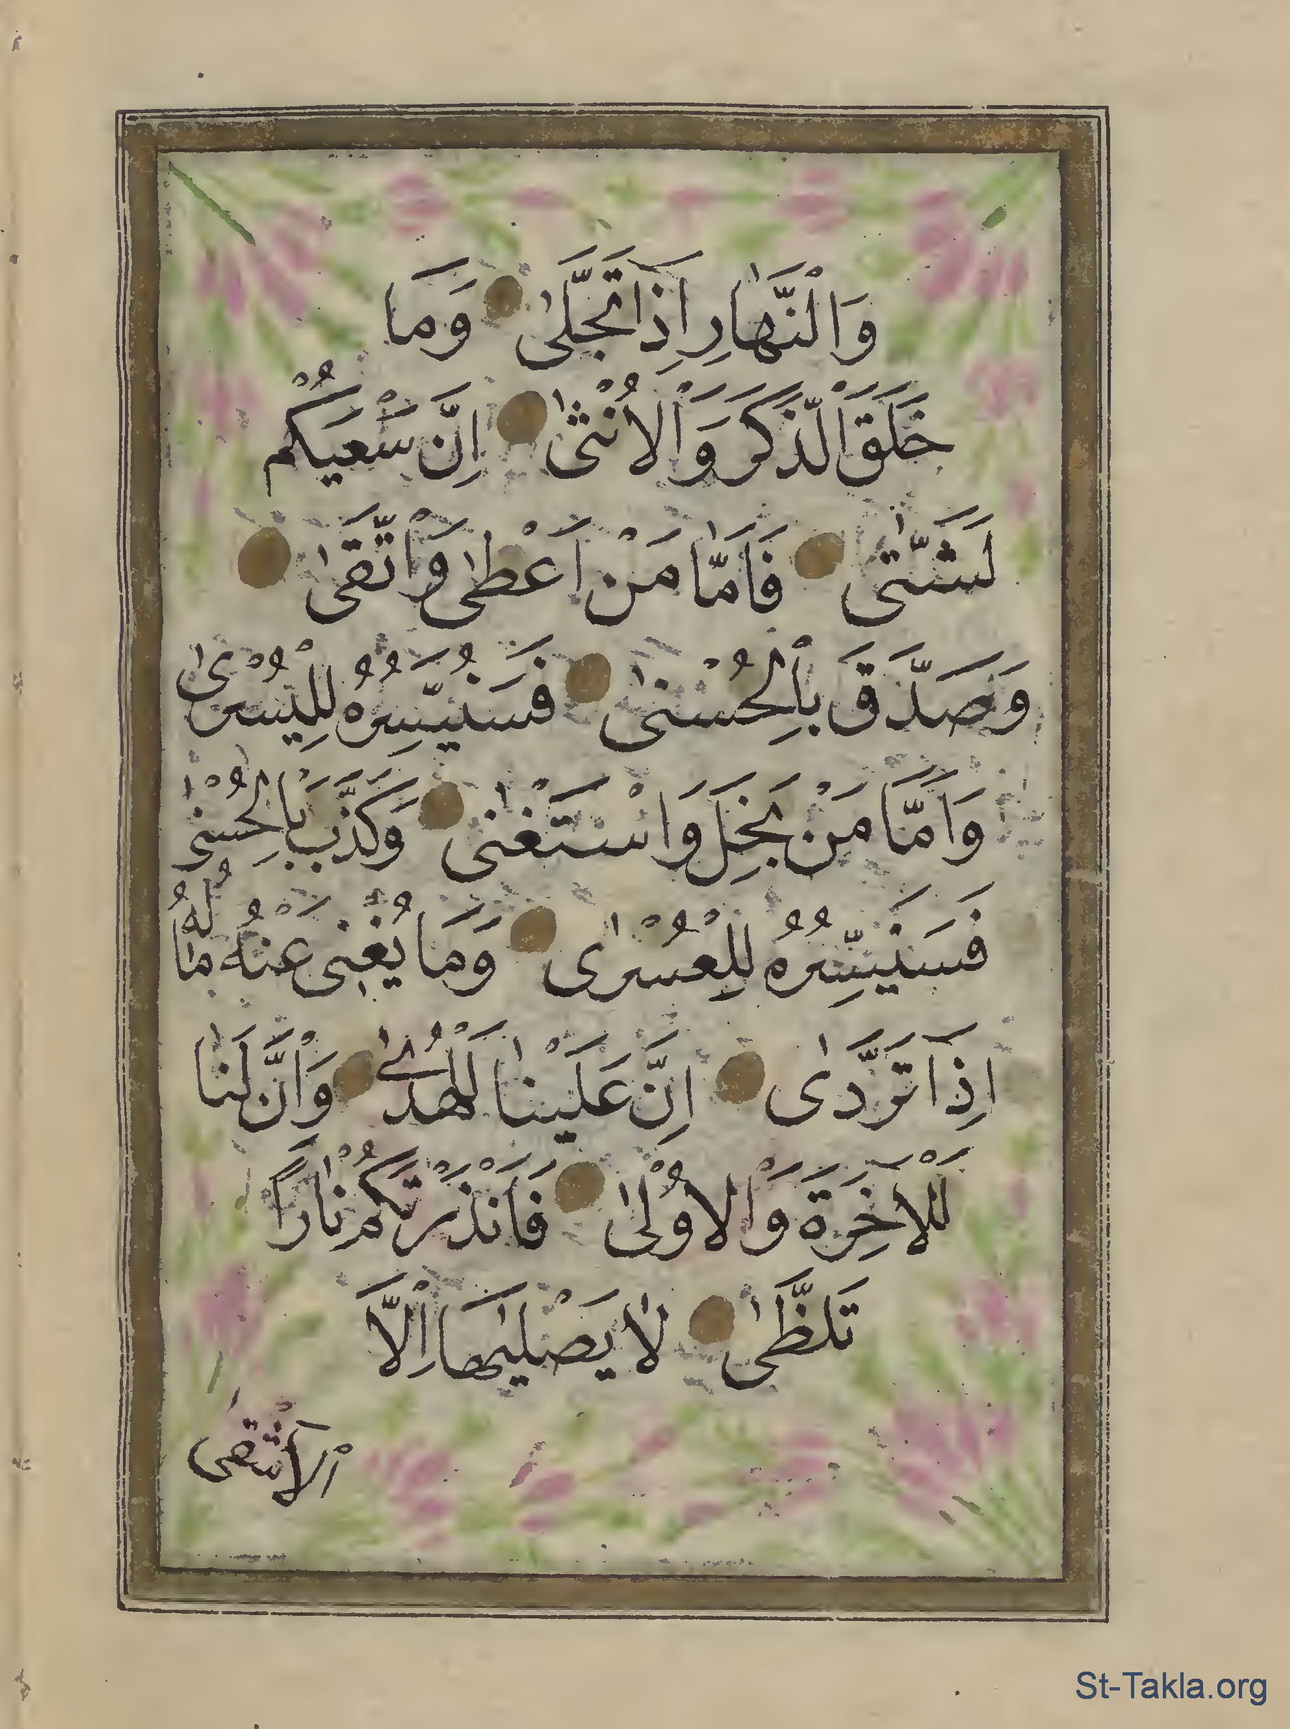 وَالنَّهَارِ اِذَا تَجَلّٰى وَمَا
خَلَقَ الذَّكَرَ وَالْاُنْثٰى اِنَّ سَعْيَكُمْ
لَشَتّٰى فَاَمَّا مَنْ اَعْطٰى وَاتَّقٰى
وَصَدَّقَ بِالْحُسْنٰى فَسَنُيَسِّرُهُ لِلْيُسْرٰى
وَاَمَّا مَنْ بَخِلَ وَاسْتَغْنٰى وَكَذَّبَ بِالْحُسْنٰى
فَسَنُيَسِّرُهُ لِلْعُسْرٰى وَمَا يُغْنِى عَنْهُ مَالُهُ
اِذَا تَرَدّٰى اِنَّ عَلَيْنَا لَلْهُدٰى وَاِنَّ لَنَا
لَلْاٰخِرَةَ وَالْاُولٰى فَاَنْذَرْتُكُمْ نَارًا
تَلَظّٰى لَا يَصْلٰيهَا اِلَّا
الْاَشْقٰى
St-Takla.org